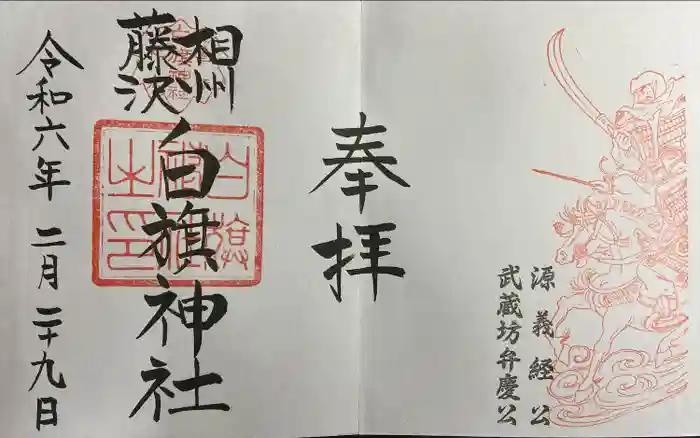 源義経公
武蔵坊弁慶公
奉拝
相州
藤沢
白旗神社
白旗神社之印
令和六年二月二十九日